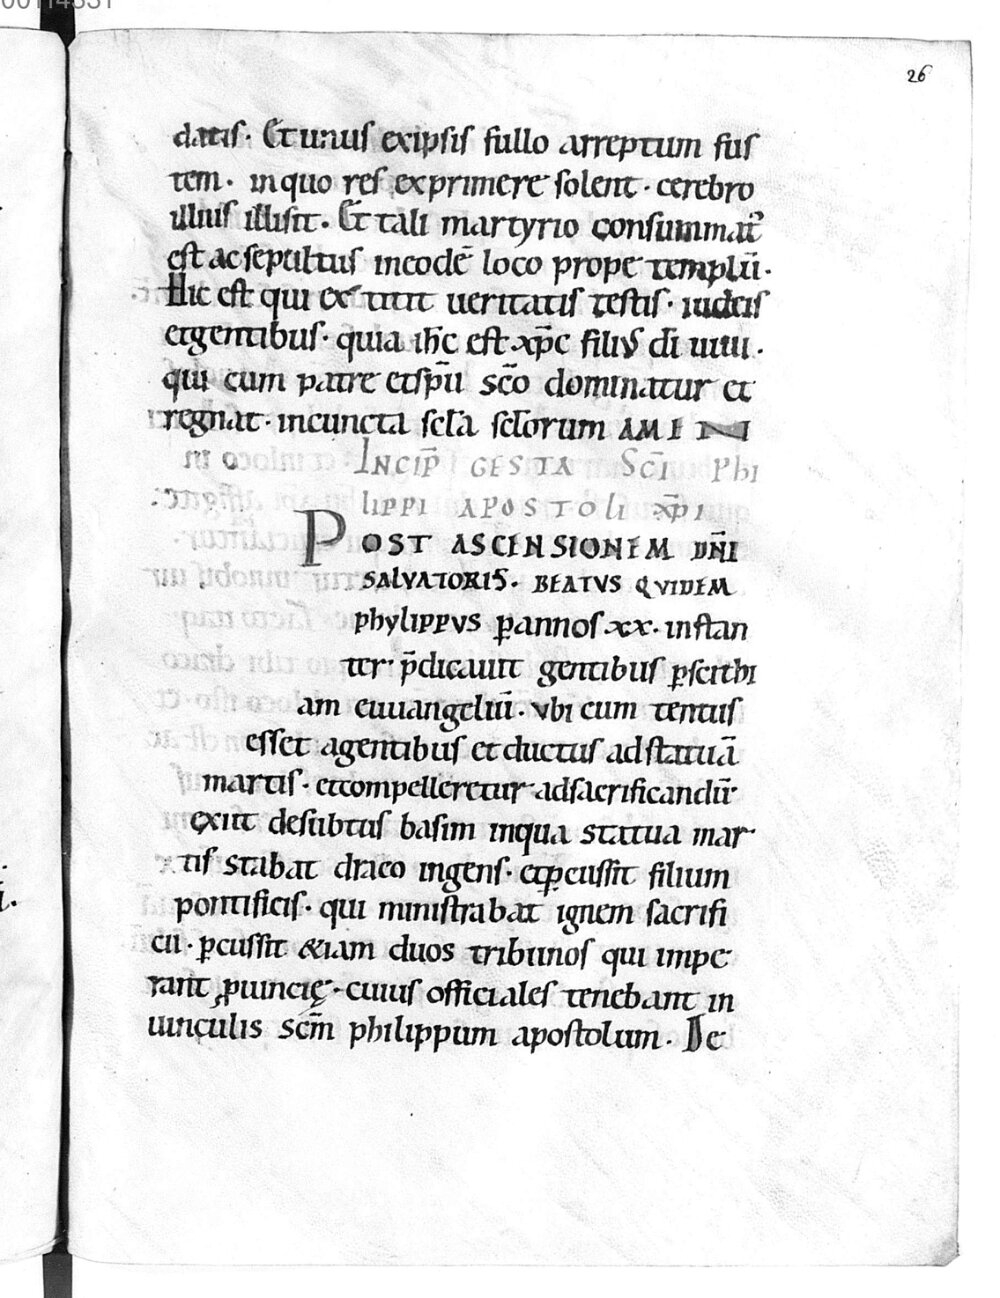 00114331
26
datis. Et unus exipsis fullo arreptum fus
tem. inquo res exprimere solent. cerebro
illius illisit. Et tali martyrio consummat᷒
est ac sepultus ineodē loco prope templū.
Hic est qui extitit ueritatis testis. iudeis
etgentibus. quia ihc̄ est xp̄c filiꝰ dī uiui.
qui cum patre etsp̄u sc̄o dominatur et
regnat. incuncta scl̄a scl̄orum AMEN
INCIP̄ GESTA SC̄I PhI
LIPPI APOSTOLI XP̄I
POST ASCENSIONEM DN̄I
SALVATORIS. BEATVS QVIDEM
phylippvs ꝑannos xx. instan
ter p̄dicauit gentibus ꝑscithi
am euuangeliū. vbi cum tentus
esset agentibus et ductus adstatuā
martis. etcompelleretur adsacrificandū
exiit desubtus basim inqua statua mar
tis stabat draco ingens. etꝑcussit filium
pontificis. qui ministrabat ignem sacrifi
cii. ꝑcussit &iam duos tribunos qui impe
rant ꝓuincię. cuius officiales tenebant in
uinculis sc̄m philippum apostolum. De